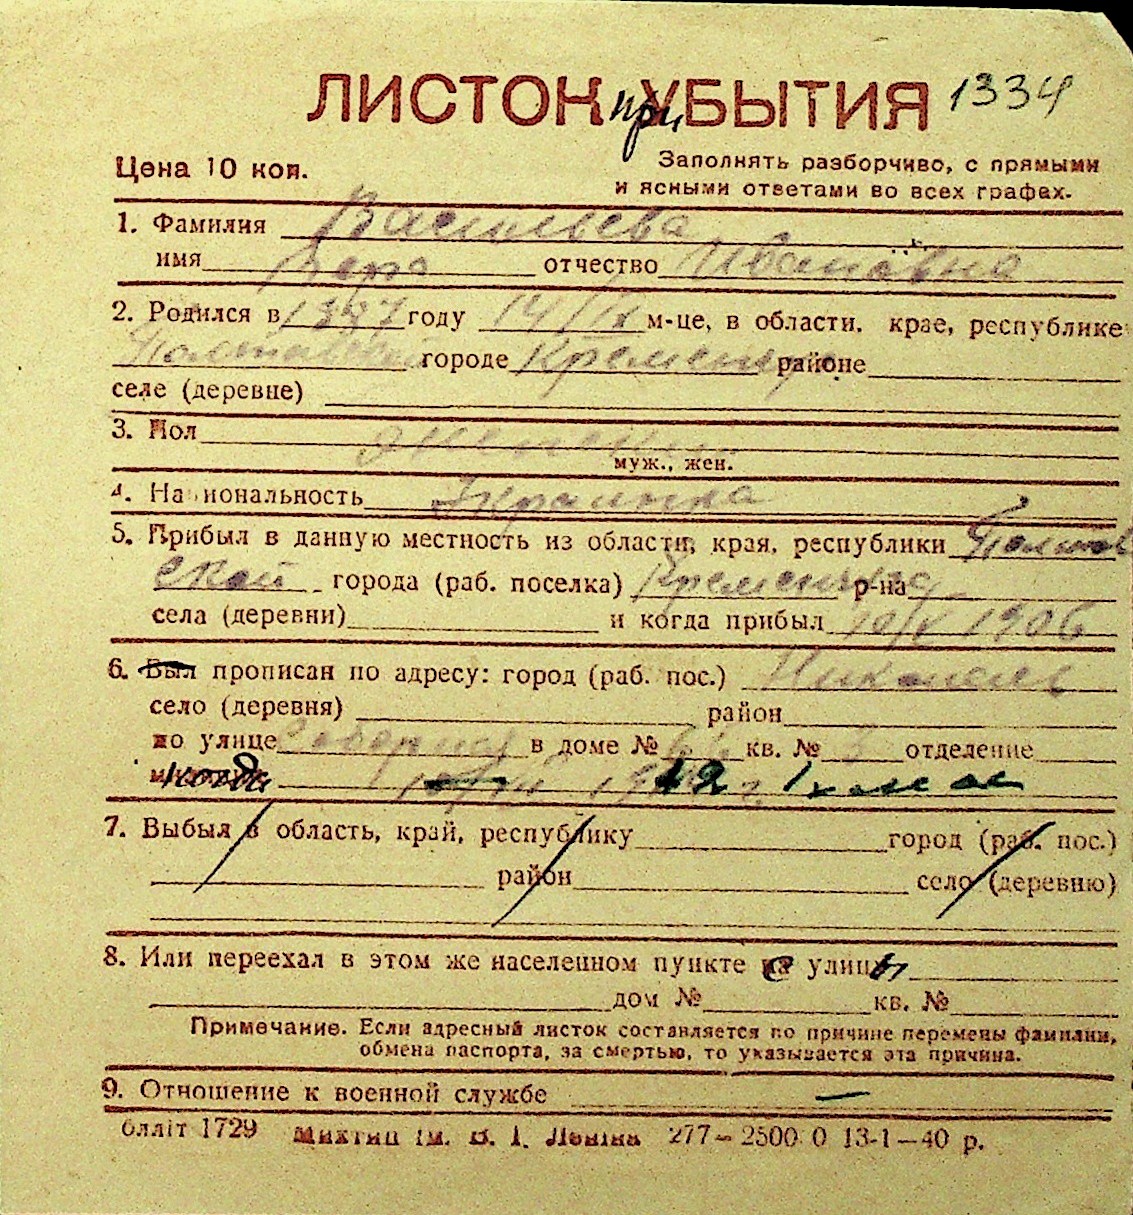 ЛИСТОК при УБЫТИЯ 1334
Цена 10 коп.
Заполнять разборчиво, с прямыми
и ясными ответами во всех графах.
1. Фамилия Васильева
имя Вера отчество Ивановна
2. Родился в году 14/IX м-це, в области, крае, республике
Полтавской городе Кременчуг районе
селе (деревне)
3. Пол женский
муж., жен.
4. Национальность Украинка
5. Прибыл в данную местность из области, края, республики Полтав
ской города (раб. поселка) Кременчуга р-на
села (деревни) и когда прибыл 10/V 1906
6. Был прописан по адресу: город (раб. пос.) Никополь
село (деревня) район
по улице Северная в доме № кв. № 3 отделение
когда 42 г.
7. Выбыл в область, край, республику город (раб. пос.)
район село (деревню)
8. Или переехал в этом же населенном пункте с улицы
дом № кв. №
Примечание. Если адресный листок составляется по причине перемены фамилии,
обмена паспорта, за смертью, то указывается эта причина.
9. Отношение к военной службе —
Олліт 1729 Міхтип ім. В. І. Леніна 277–2500 0 13-1–40 р.